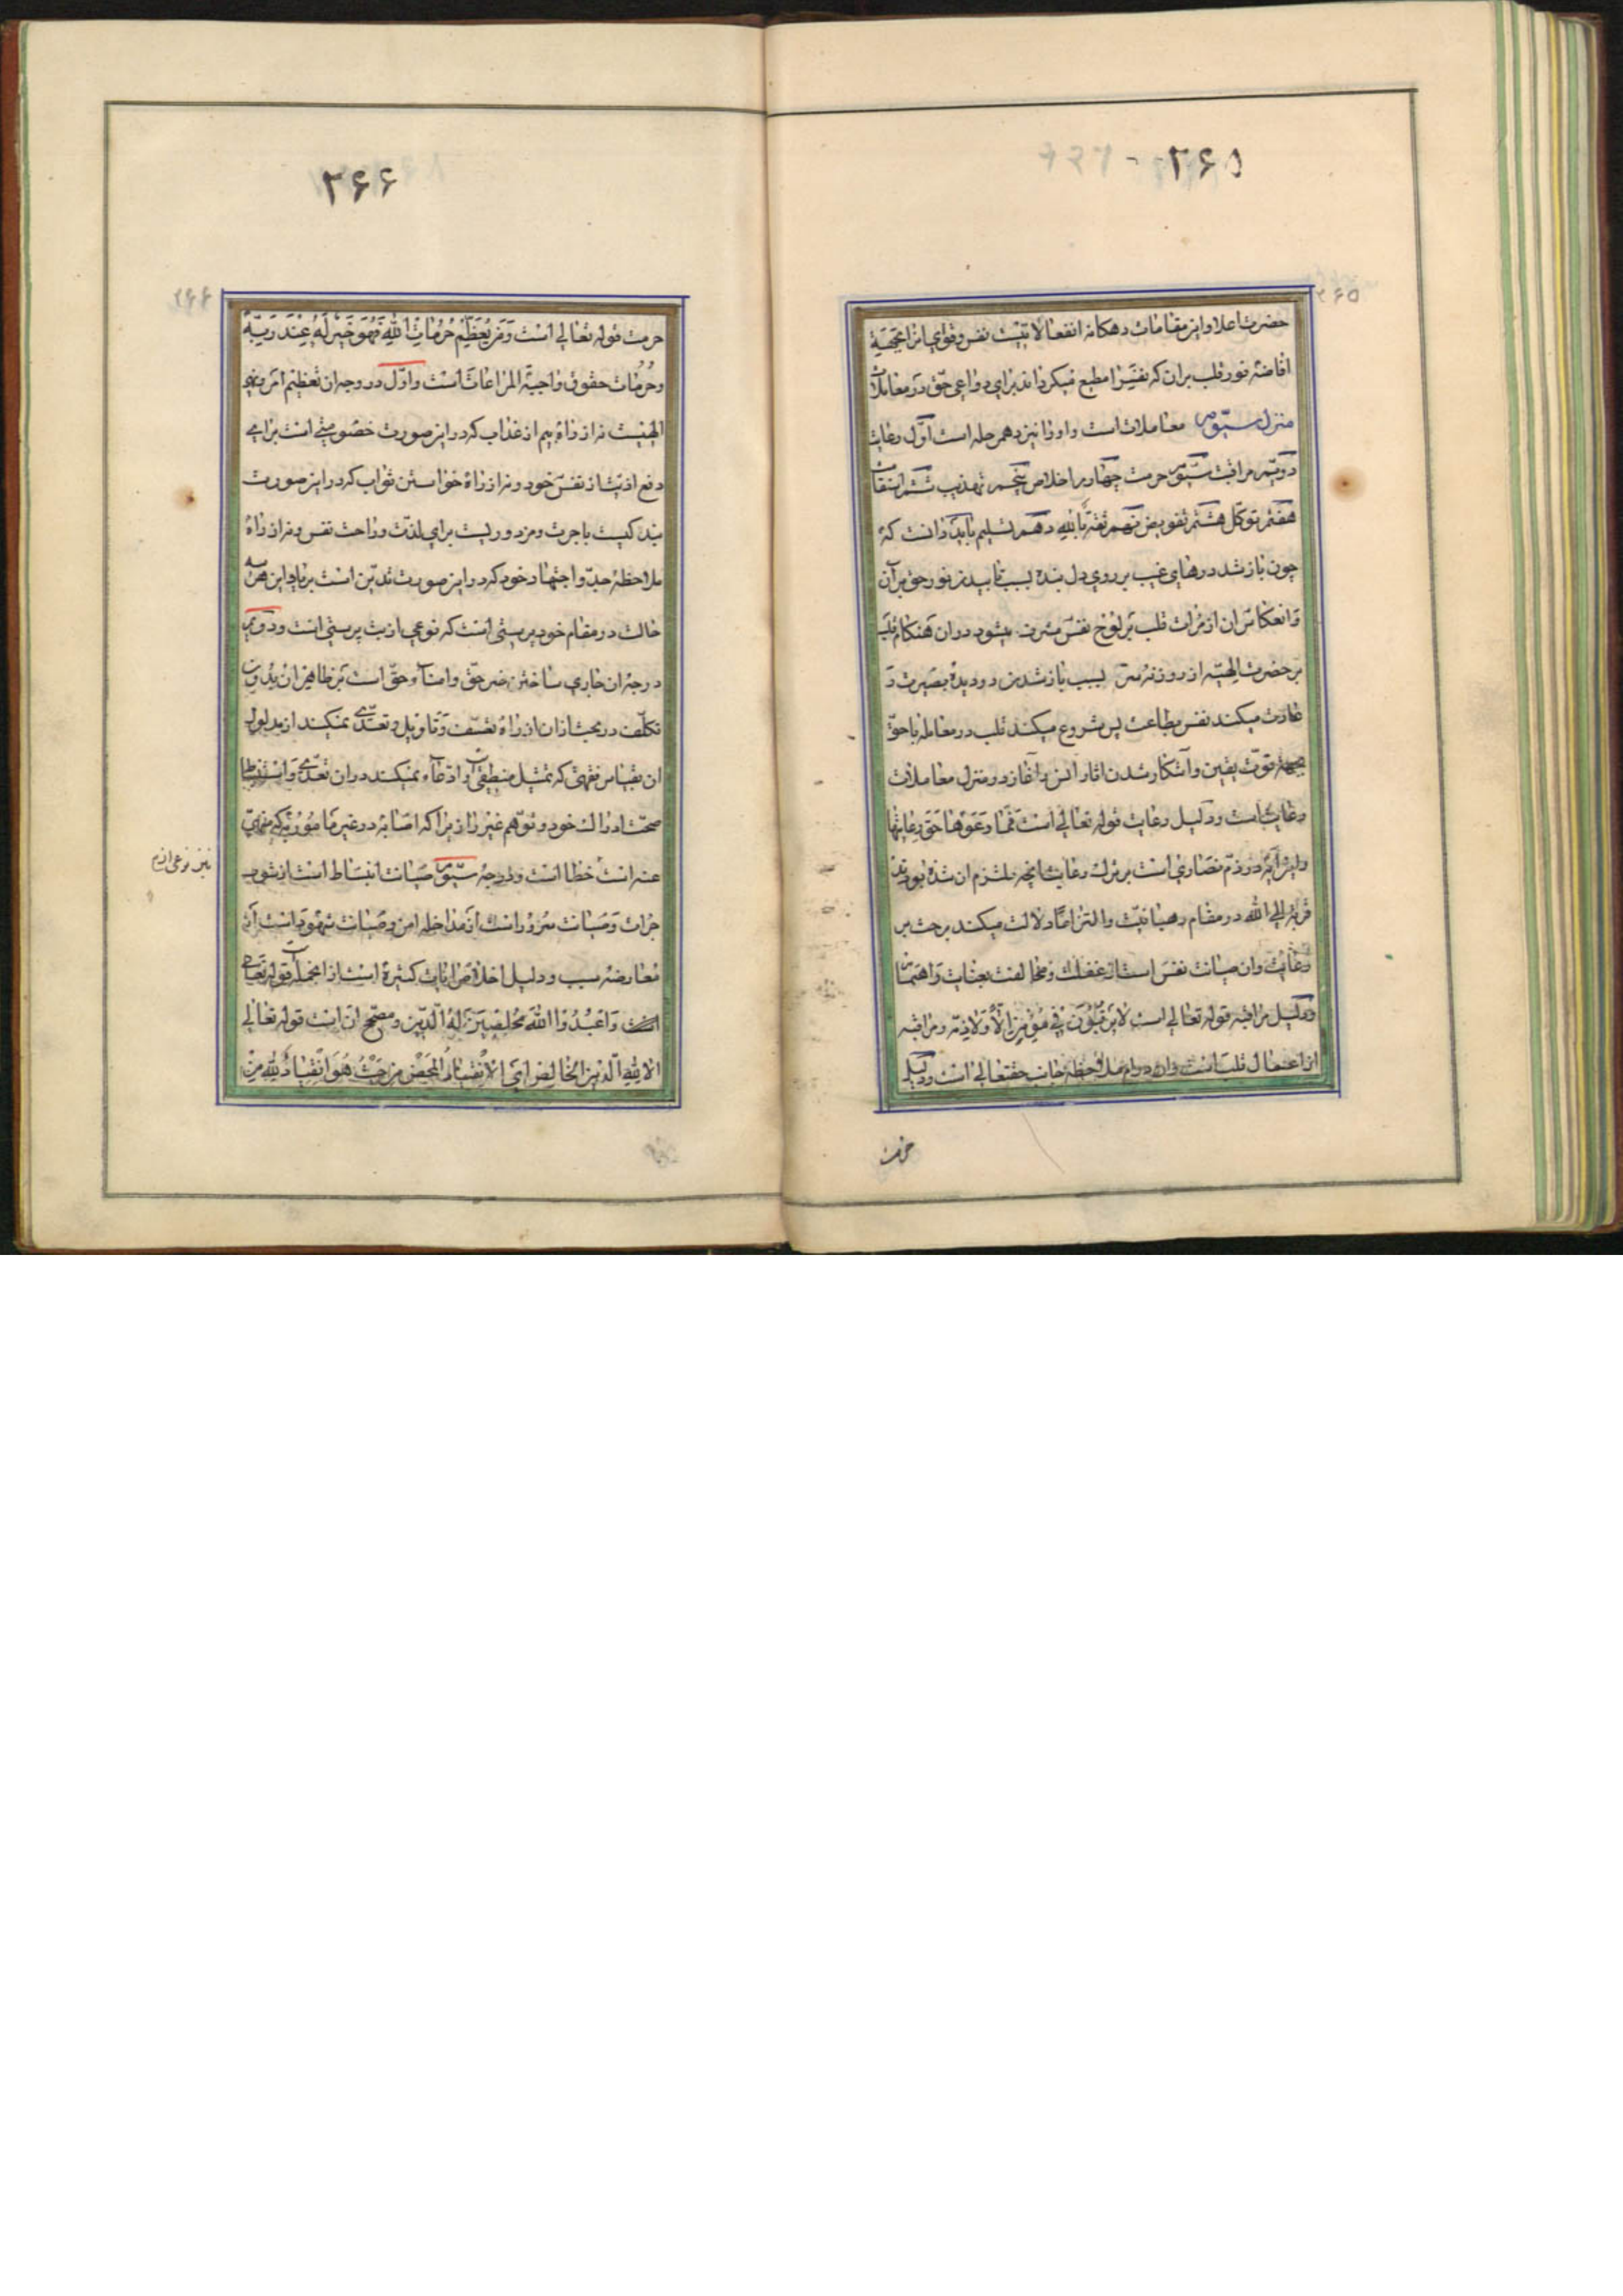 ۲۶۵
۲۶۵
حضرت اعلا و این مقامات دهکانه انفعالاتیست نفس و قوای انرا بجهة
افاضهٔ نور قلب بران که نفس را مطیع میکرداند برای دواعی حق در معاملات
منزل سیّوم معاملات است و اورا نیز ده مرحله است اوّل رعایت
دویّم مراقبت سیّوم حرمت چهارم اخلاص پنجم تهذیب ششم استقامت
هفتم توکّل هشتم تفویض نهم ثقة بالله دهم تسلیم باید دانست که
چون باز شد درهای غیب بر روی دل بنده بسبب تابیدن نور حق بر آن
و انعکاس ان از مرات قلب بر لوح نفس مشرف میشود در ان هنکام قلب
بر حضرت الهیّه از روزنه سر بسبب باز شدن دو دیدهٔ بصیرت و
عادت میکند نفس بطاعت پس شروع میکند قلب در معامله با حق
بجهة قوّت یقین و آشکار شدن اثار انس و آغاز در منزل معاملات
رعایت است و دلیل رعایت قوله تعالی است فَمَا رَعَوْهَا حَقَّ رِعَایَتِهَا
و این آیه در ذمّ نصاری است بر ترک رعایت انچه ملتزم ان شده بودند
قربة الی الله در مقام رهبانیّت و التزاما دلالت میکند بر حث بر
رعایت و ان صیانت نفس است از غفلت و مخالفت بعنایت و اهتمام
و دلیل مراقبه قوله تعالی است لَا یَرْقُبُونَ فِی مُؤْمِنٍ اِلًّا وَلَا ذِمَّة و مراقبه
از اعمال قلب است و ان دوام ملاحظه جانب حقتعالی است و دلیل
حرمت
۲۶۶
۲۶۶
حرمت قوله تعالی است وَ مَنْ یُعَظِّمْ حُرُمَاتِ اللهِ فَهُوَ خَیْرٌ لَهُ عِنْدَ رَبِّهِ
و حُرُمات حقوق واجبة المراعات است و اوّل درجه ان تعظیم امر و نهی
الهیست نه از راه بیم از عذاب که در این صورت خصومتی است برای
دفع اذیّت از نفس خود و نه از راه خواستن ثواب که در این صورت
بندکیست باجرت و مزدوریست برای لذّت و راحت نفس و نه از راه
ملاحظهٔ جدّ و اجتهاد خود که در این صورت تدیّن است بریا و این هر سه
حالت در مقام خود پرستی است که نوعی از بت پرستی است و دویّم
درجه ان جاری ساختن خبر حق و امنآء حقّ است بر ظاهر ان بدون
تکلّف در بحث از ان از راه تعسّف و تاویل و تعدّی نمیکند از مدلول
ان بقیاس فقهی که تمثیل منطقی است و ادّعآء نمیکند در ان تعدّی و استنباط
صحّت ادراک خود و توهّم غیر را زیرا که اصابه در غیر مامُورٌ به که منهیّ
عنه است خطا است و درجهٔ سیّوم صیانت انبساط است از شوب
نیز نوعی از
جرات و صیانت سرور است از مداخله امن و صیانت شهود است از
معارضه سبب و دلیل اخلاص ایات کثیرة است از انجمله قوله تعالی
است وَاعْبُدُوا اللهَ مُخْلِصِینَ لَهُ الدِّینَ و مصحّح ان است قوله تعالی
الا لِلّهِ الدّینُ الخالِصُ اَی الاِنْقِیادُ المَحْضُ مِن حَیْثُ هُوَ انْقِیادٌ لِلّهِ مِنْ